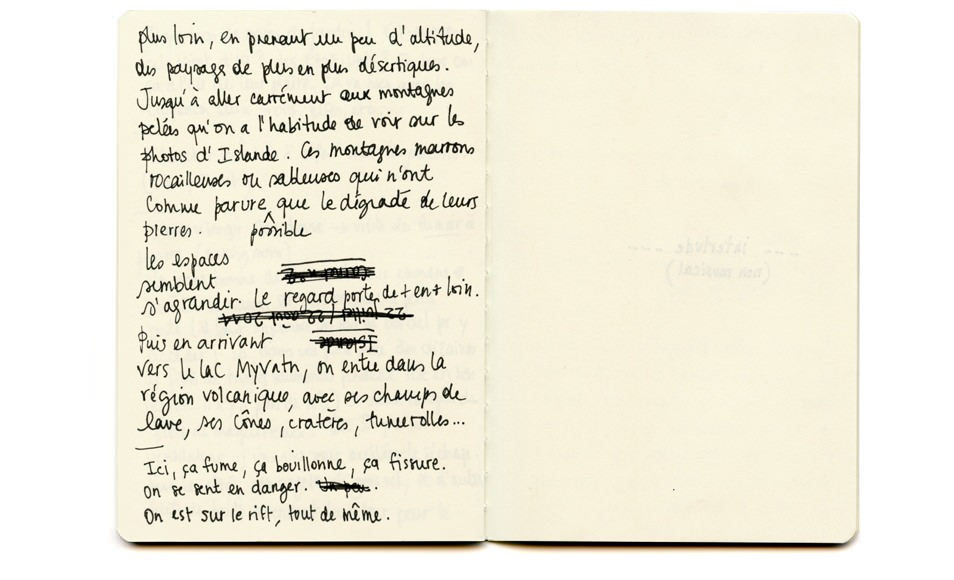 plus loin, en prenant un peu d'altitude,
des paysage de plus en plus désertiques.
Jusqu'à aller carrément aux montagnes
pelées qu'on a l'habitude de voir sur les
photos d'Islande. Ces montagnes marrons
rocailleuses ou sableuses qui n'ont
comme parure que le dégradé de leurs
pierres. possible
les espaces
semblent
s'agrandir. Le regard porte de + en + loin.
22 juillet / 22 août 2014
Puis en arrivant Islande
vers le lac Myvatn, on entre dans la
région volcanique, avec ses champs de
lave, ses cônes, cratères, fumerolles...
Ici, ça fume, ça bouillonne, ça fissure.
On se sent en danger. Un peu.
On est sur le rift, tout de même.
--- interlude ---
(non musical)